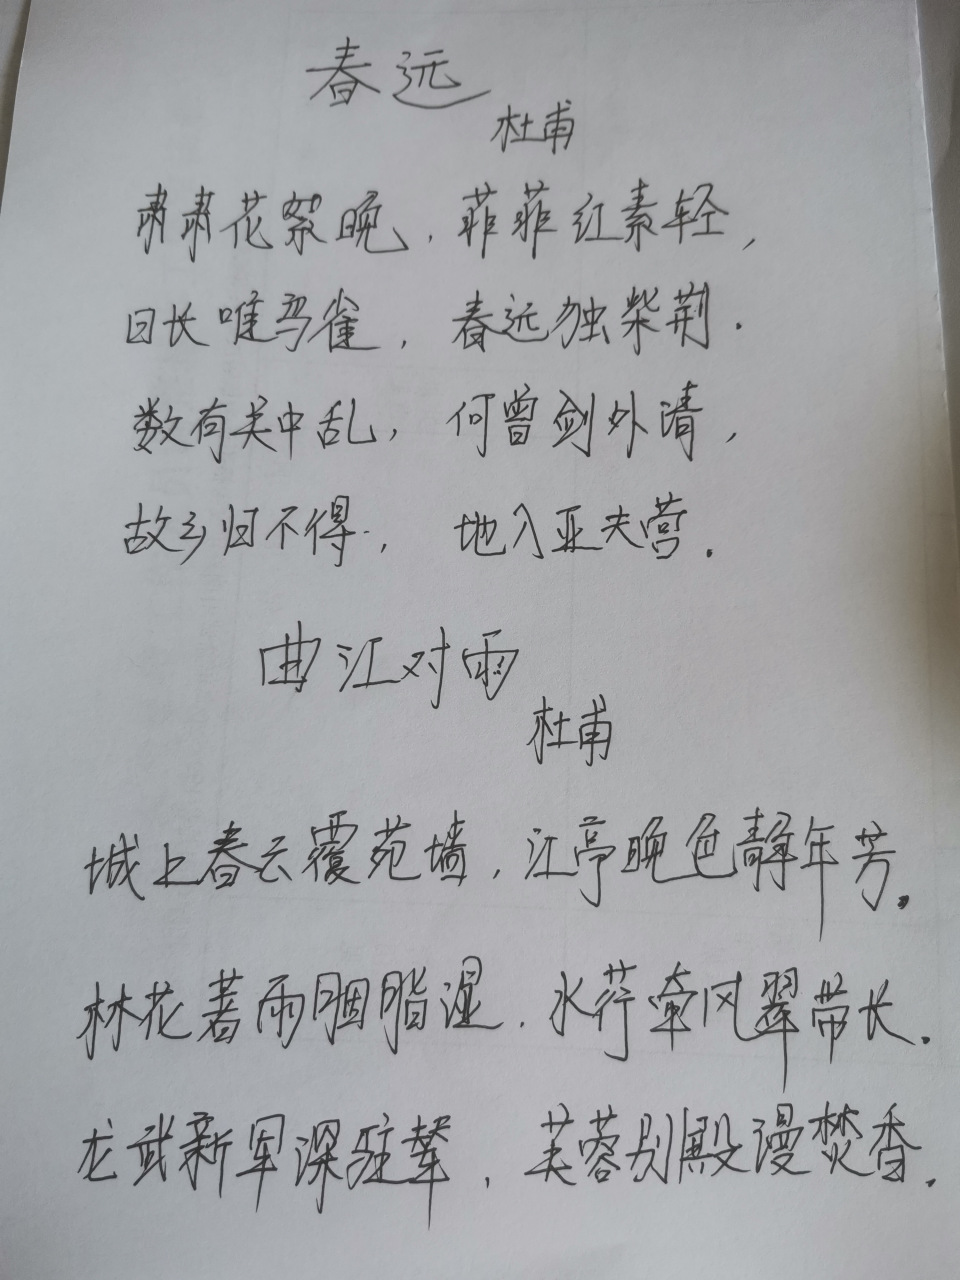 春远
杜甫
肃肃花絮晚，菲菲红素轻，
日长唯鸟雀，春远独柴荆.
数有关中乱，何曾剑外清，
故乡归不得，地入亚夫营.
曲江对雨
杜甫
城上春云覆苑墙，江亭晚色静年芳.
林花著雨胭脂湿，水荇牵风翠带长.
龙武新军深驻辇，芙蓉别殿漫焚香.